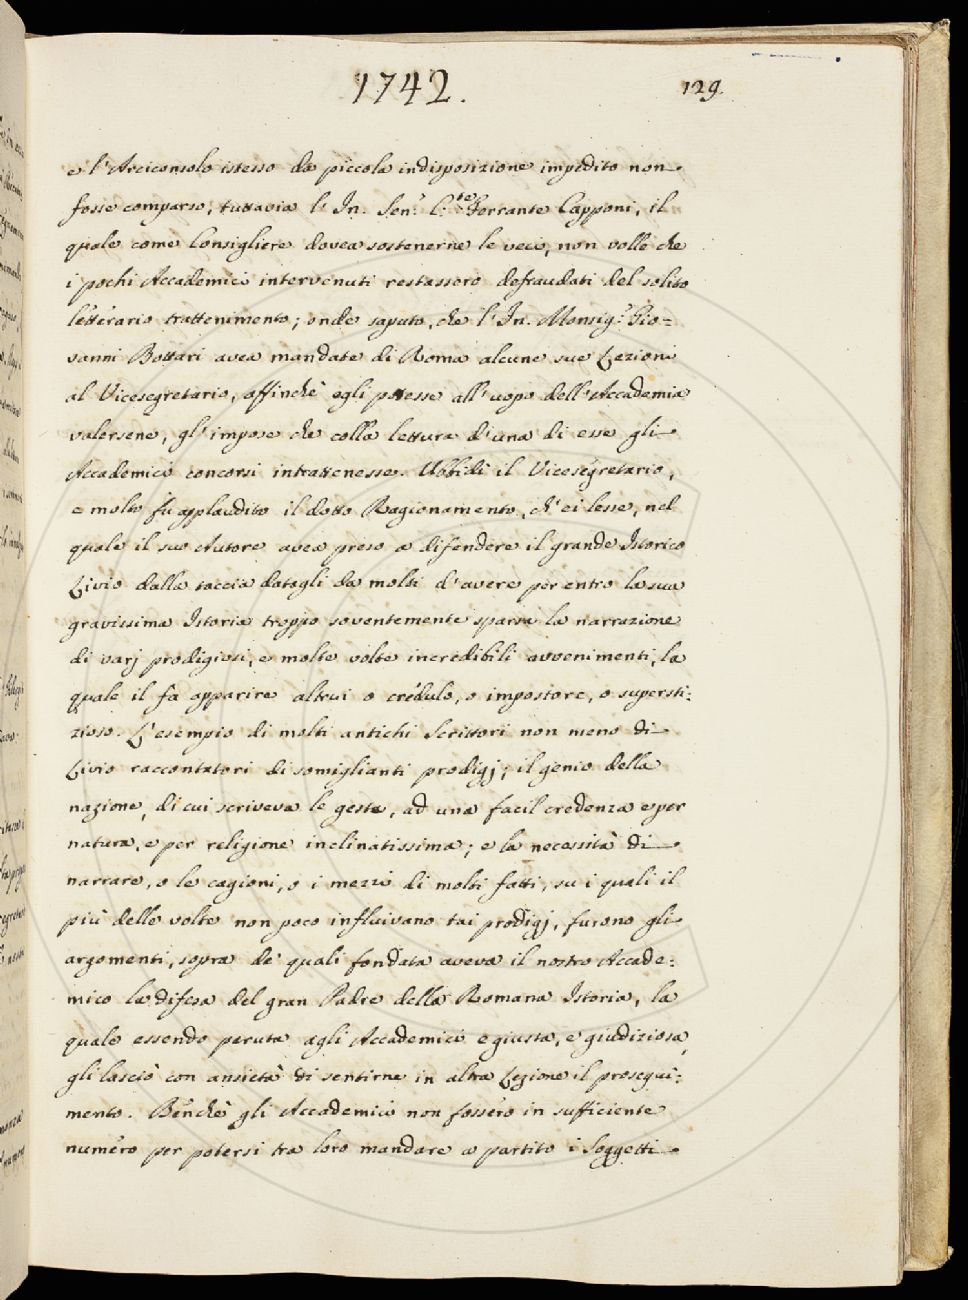 1742.
129.
e l'Arciconsolo istesso da piccola indisposizione impedito non
fosse comparso; tuttavia l'In. Sen.r C.te Ferrante Capponi, il
quale come Consigliere dovea sostenerne le veci, non volle che
i pochi Accademici intervenuti restassero defraudati del solito
letterario trattenimento; onde saputo, che l'In. Monsig.r Gio=
vanni Bottari avea mandate di Roma alcune sue Lezioni
al Vicesegretario, affinchè egli potesse all'uopo dell'Accademia
valersene, gl'impose che colla lettura d'una di esse gli
Accademici concorsi intrattenesse. Ubbidì il Vicesegretario,
e molto fu applaudito il dotto Ragionamento, ch'ei lesse, nel
quale il suo Autore avea preso a difendere il grande Istorico
Livio dalla taccia datagli da molti d'avere per entro la sua
gravissima Istoria troppo soventemente sparsa la narrazione
di varj prodigiosi, e molte volte incredibili avvenimenti, la
quale il fa apparire altrui o credulo, o impostore, o supersti=
zioso. L'esempio di molti antichi Scrittori non meno di
Livio raccontatori di somiglianti prodigj; il genio della
nazione, di cui scriveva le gesta, ad una facil credenza e per
natura, e per religione inclinatissima; e la necessità di
narrare, o le cagioni, o i mezzi di molti fatti, su i quali il
più delle volte non poco influivano tai prodigj, furono gli
argomenti, sopra de' quali fondata aveva il nostro Accade=
mico la difesa del gran Padre della Romana Istoria, la
quale essendo paruta agli Accademici e giusta, e giudiziosa,
gli lasciò con ansietà di sentirne in altra Lezione il prosegui=
mento. Benchè gli Accademici non fossero in sufficiente
numero per potersi tra loro mandare a partito i Soggetti